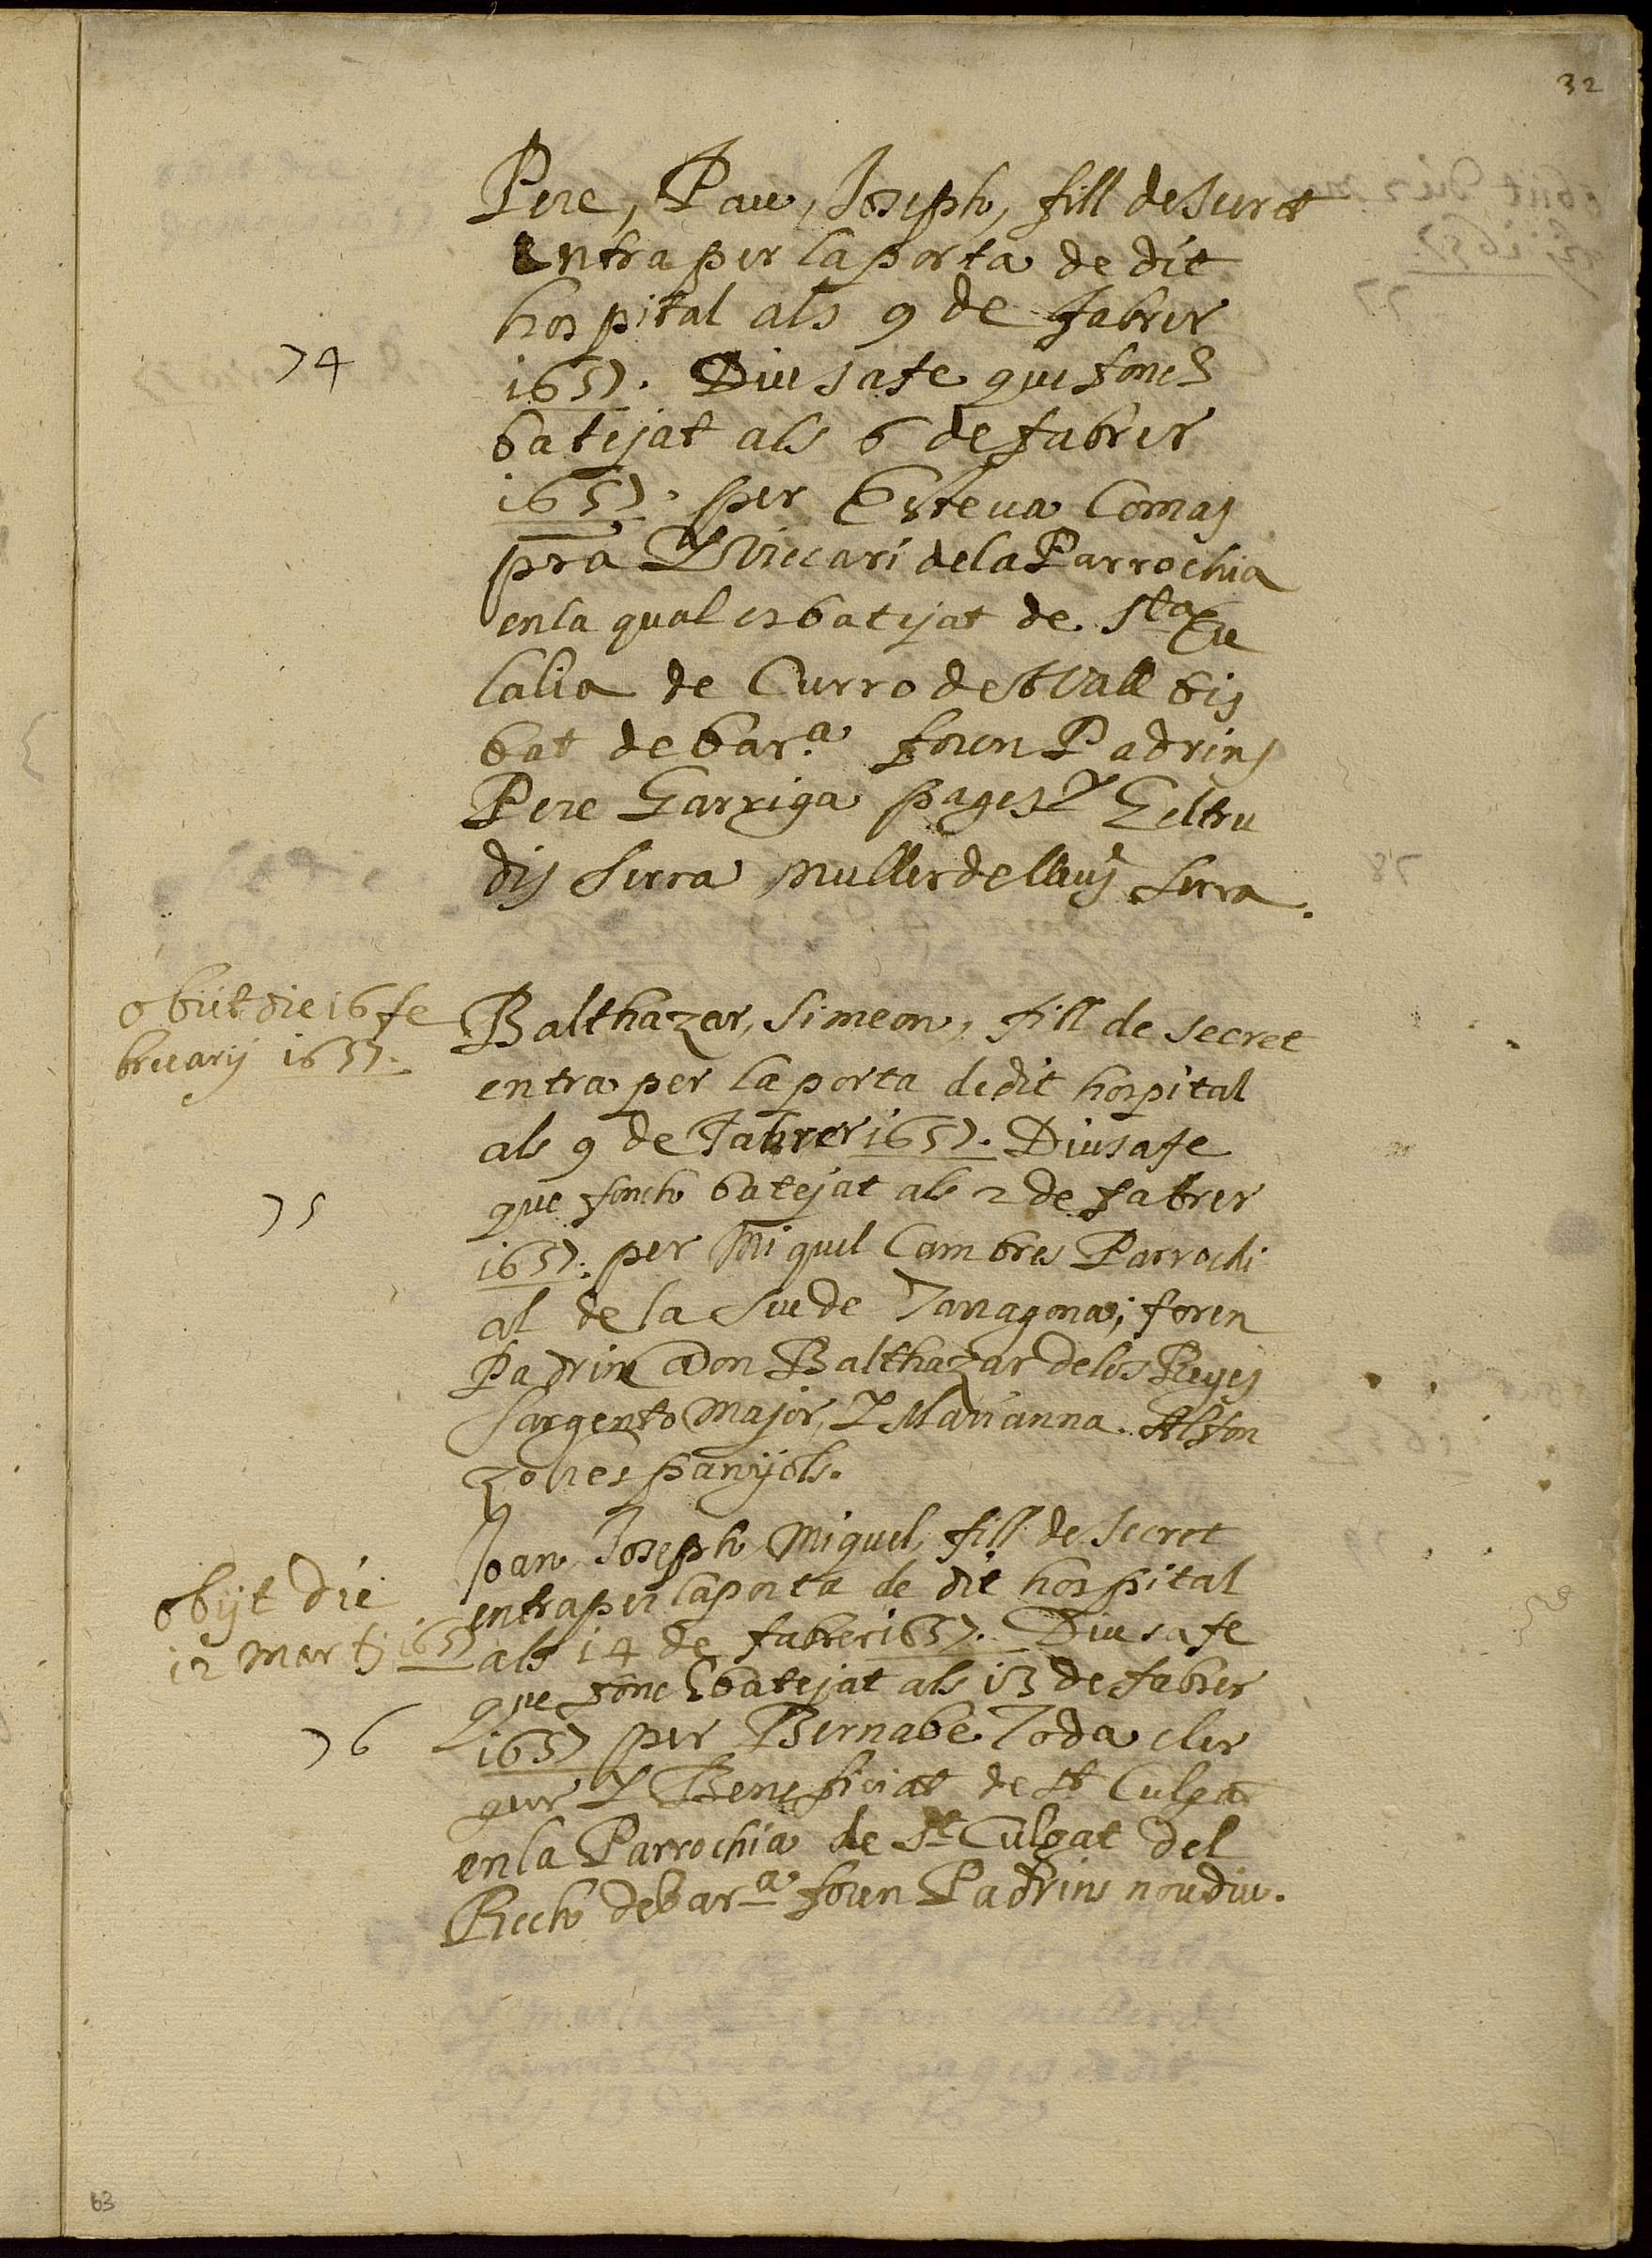 32
Pere, Pau, Joseph, fill de secret
Entra per la porta de dit
hospital als 9 de Fabrer
74
1657. Diu sa fe que fonch
batejat als 6 de fabrer
1657. per Esteva Comas
pra Y Viccari de la Parrochia
en la qual es batejat de Sta Eu
lalia de Curro de Vall bis
bat de bar.a foren Padrins
Pere Garriga pages Y Geltru
dis Serra muller de lluis Serra.
obiit die 16 fe
bruarij 1657.
Balthazar, Simeon, fill de secret
entra per la porta de dit hospital
als 9 de Fabrer 1657. Diu sa fe
75
que fonch batejat als 2 de fabrer
1657. per Miquel Cambres Parrochi
al de la Seu de Tarragona; foren
Padrins Don Balthazar de los Reyes
Sargento Major, Y Marianna Alfon
zo nespanyols.
Joan, Joseph, Miquel, fill de secret
entra per la porta de dit hospital
obijt die
12 Martij 1657
als 14 de fabrer 1657. Diu sa fe
que fonch batejat als 13 de fabrer
76
1657 per Bernabe Toda cler
gue Y Beneficiat de St Culgat
en la Parrochia de St Culgat del
Rech de bar.a foren Padrins nou diu.
63